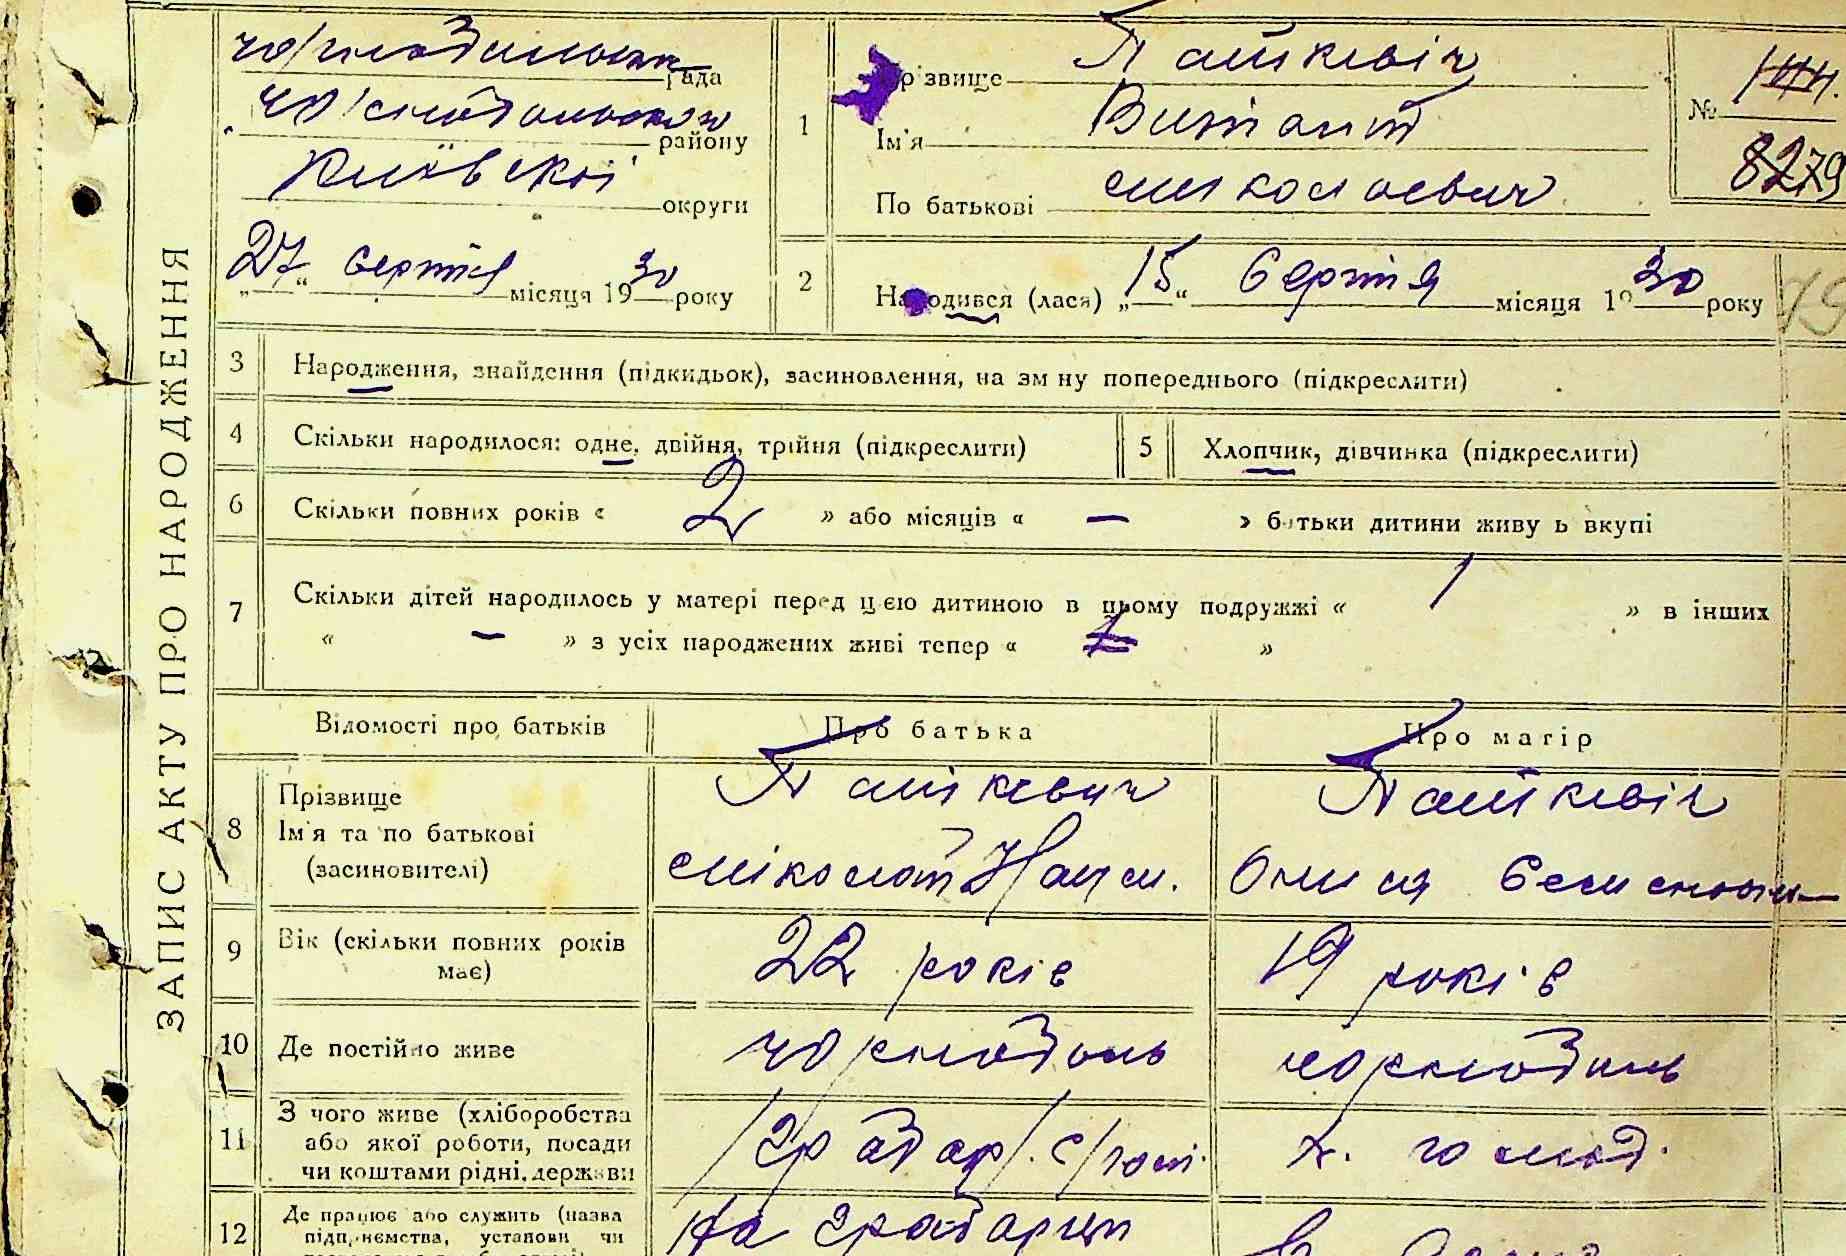 ЗАПИС АКТУ ПРО НАРОДЖЕННЯ
рада
району
Київскої округи
„27“ Серпня місяця 1930 року
1
Прізвище Пашкевіч
Ім'я Витант
По батькові миколаевич
№ 8279
2
Народився (лася) „15“ Серпня місяця 1930 року
3 Народження, знайдення (підкидьок), засиновлення, на зм ну попереднього (підкреслити)
4 Скільки народилося: одне, двійня, трійня (підкреслити)
5 Хлопчик, дівчинка (підкреслити)
6 Скільки повних років « 2 » або місяців « — » батьки дитини живу ь вкупі
7 Скільки дітей народилось у матері перед цією дитиною в цьому подружжі « 1 » в інших
« — » з усіх народжених живі тепер « »
Відомості про батьків
Про батька
Про матір
8 Прізвище
Ім'я та по батькові
(засиновителі)
Пашкевич
міколай Наум.
Пашкевіч
9 Вік (скільки повних років
має)
22 років
19 років
10 Де постійно живе
чорнобиль
чорнобиль
11 З чого живе (хліборобства
або якої роботи, посади
чи коштами рідні, держави
х. господ.
12 Де працює або служить (назва
підприємства, установи чи
На